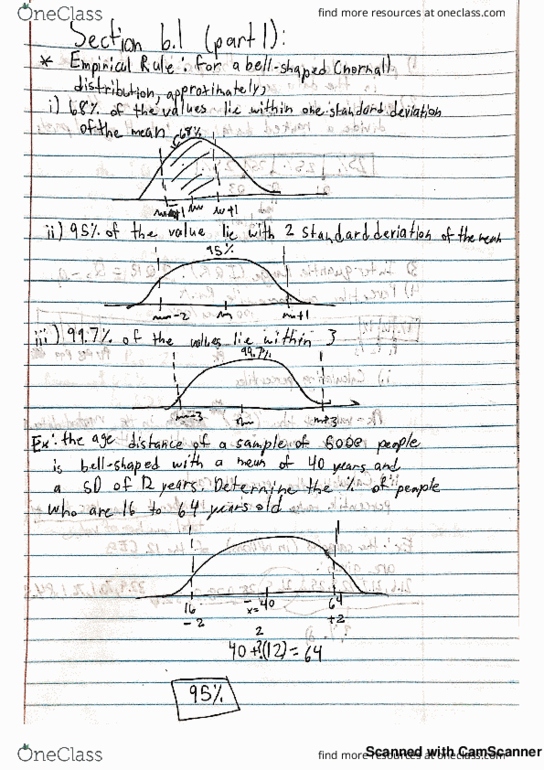 OneClass
find more resources at oneclass.com
Section 6.1 (part 1):
* Empirical Rule: for a bell-shaped (normal)
distribution, approximately,
i) 68% of the values lie within one standard deviation
of the mean
68%
m m+1
ii) 95% of the value lie with 2 standard deviation of the mean
95%
m-2 m m+1
iii) 99.7% of the values lie within 3
99.7%
m-3 m m+3
Ex: the age distance of a sample of people
is bell-shaped with a mean of 40 years and
a SD of 12 years. Determine the % of people
who are 16 to 64 years old
16 x=40 64
-2 +2
2
40+2(12)=64
95%
OneClass
find more resources at oneclass.com
Scanned with CamScanner